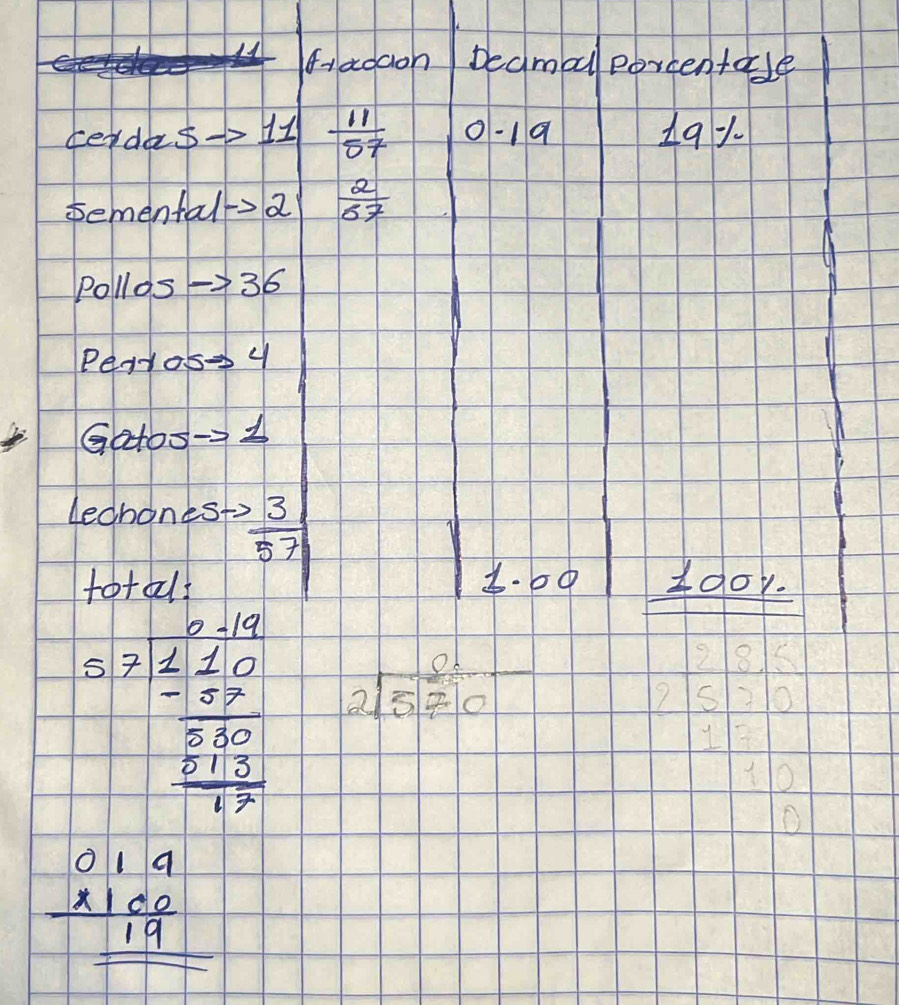 fraccion Decimal Porcentaje
cerdas -> 11 11/57 0.19 19%
Semental -> 2 2/57
Pollos -> 36
Perros -> 4
Gatos -> 1
Lechones -> 3
57
total: 1.00 100%
0.19
57 110
- 57
530
513
17
0.
2 570
28.5
2 570
17
10
0
019
x100
19